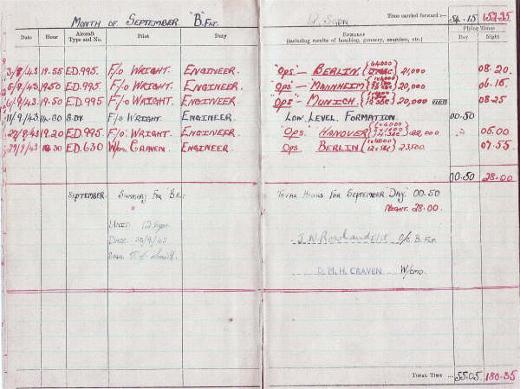 MONTH OF SEPTEMBER "B" FLT.
Time carried forward :— 54.15 152.35
Date Hour Aircraft Type and No. Pilot Duty REMARKS (including results of bombing, gunnery, exercises, etc.) Flying Times Day Night
3/9/43 19.55 ED.995. F/o WRIGHT. ENGINEER. "Ops" — BERLIN 21,000 08.20
5/9/43 1950 ED.995. F/o WRIGHT. ENGINEER. "Ops" — MANNHEIM 20,000 06.15
6/9/43 19.50 ED.995. F/o WRIGHT. ENGINEER. "Ops" — MUNICH 20,000 08.25
11/9/43 F/o WRIGHT. ENGINEER. LOW LEVEL FORMATION 00.50
27/9/43 19.20 ED.995 F/o WRIGHT. ENGINEER. "Ops" HANOVER 05.00
29/9/43 ED.630 W/co CRAVEN. ENGINEER Ops BERLIN 07.55
00.50 28.00
SEPTEMBER SUMMARY FOR
TOTAL HOURS FOR SEPTEMBER DAY: 00.50
NIGHT. 28.00
UNIT
DATE
O/c B. FLT.
D.M.H. CRAVEN W/Cmd.
TOTAL TIME 55.05 180.35